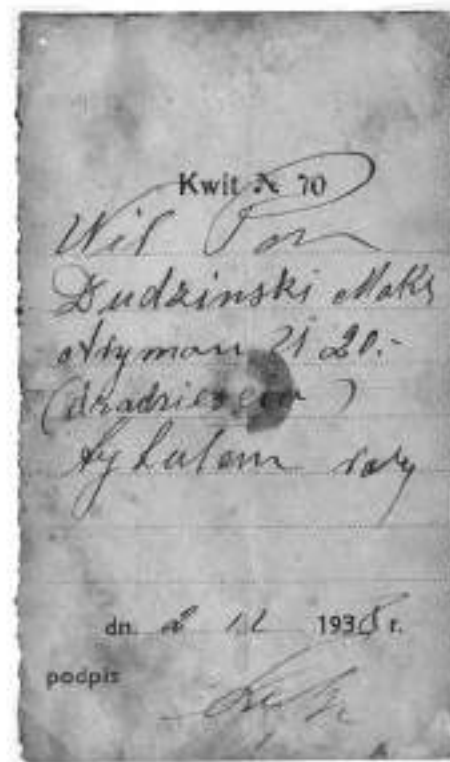 Kwit № 70
Wił Pan
Dudzinski Maks
otrzyman zł 20.-
(dradziescia)
tytulem raty
dn. 2 12 1935 r.
podpis